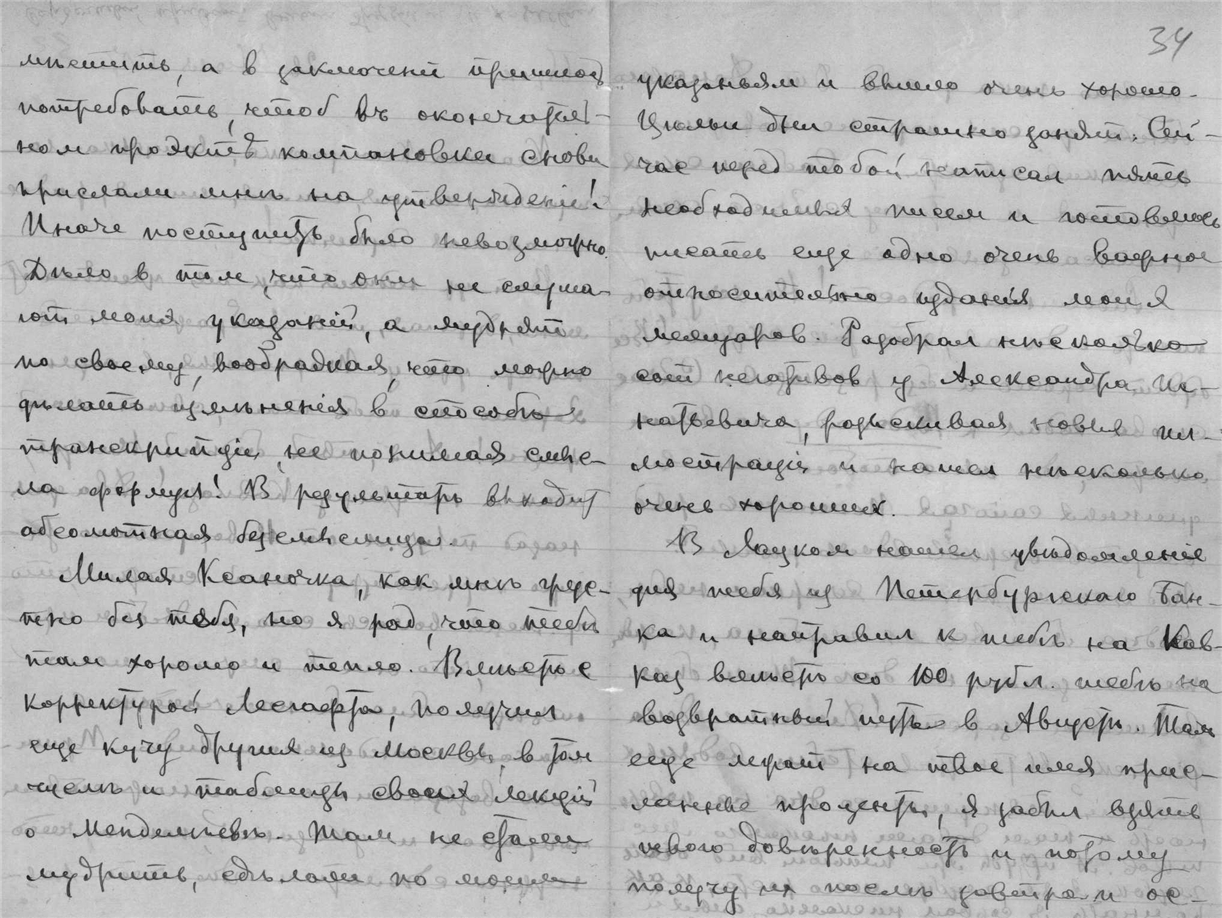 34
мѣстить, а в заключеніи пришлось
потребовать, чтоб въ окончатель-
ном проэктѣ компановки снова
прислали мнѣ на утвержденіе!
Иначе поступить было невозможно.
Дѣло в том, что они не слуша-
ют моих указаній, а мудрят
по своему, воображая, что можно
дѣлать измѣненія в способѣ
транскрипціи, не понимая смыс-
ла формул! В результатѣ выходит
абсолютная безсмыслица.
Милая Ксаночка, как мнѣ груст-
но без тебя, но я рад, что тебѣ
там хорошо и тепло. Вмѣстѣ с
корректурой Лесгафта, получил
еще кучу других из Москвы, в том
числѣ и таблицы своих лекцій
о Менделѣевѣ. Там не стали
мудрить, сдѣлали по моим
указаньям и вышло очень хорошо.
Цѣлые дни страшно занят. Сей-
час перед тобой написал пять
необходимых писем и готовлюсь
писать еще одно очень важное
относительно изданія моих
мемуаров. Разобрал нѣсколько
сот негативов у Александра Иг-
натьевича, разыскивая новых ил-
люстрацій и нашел нѣсколько
очень хороших.
В Яцком нашел увѣдомленіе
для тебя из Петербургскаго Бан-
ка и направил к тебѣ на Кав-
каз вмѣстѣ со 100 рубл. тебѣ на
возвратный путь в Августѣ. Там
еще лежат на твое имя прис-
ланные проценты, я забыл взять
твою довѣренность и потому
получу их послѣ завтра и ос-